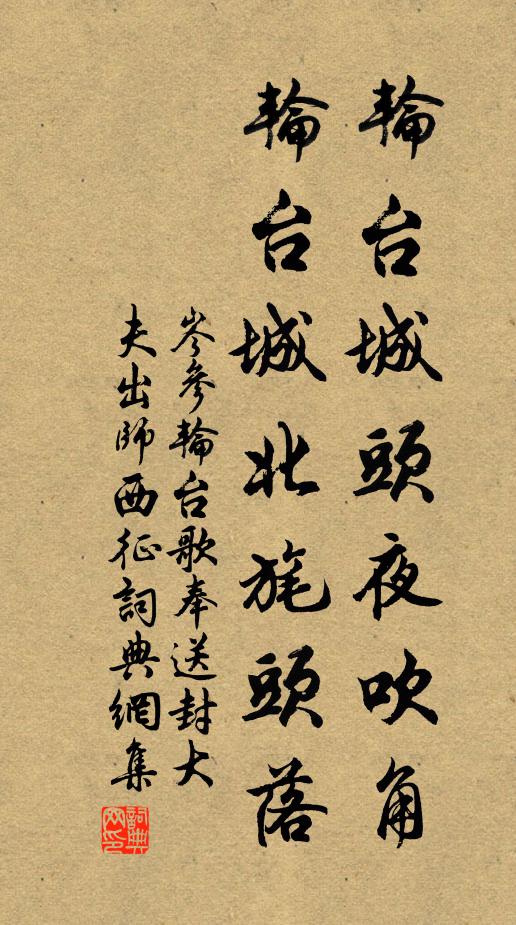 輪台城頭夜吹角
輪台城北旄頭落
岑參輪台歌奉送封大
夫出師西征詞典網集
詞典
网印